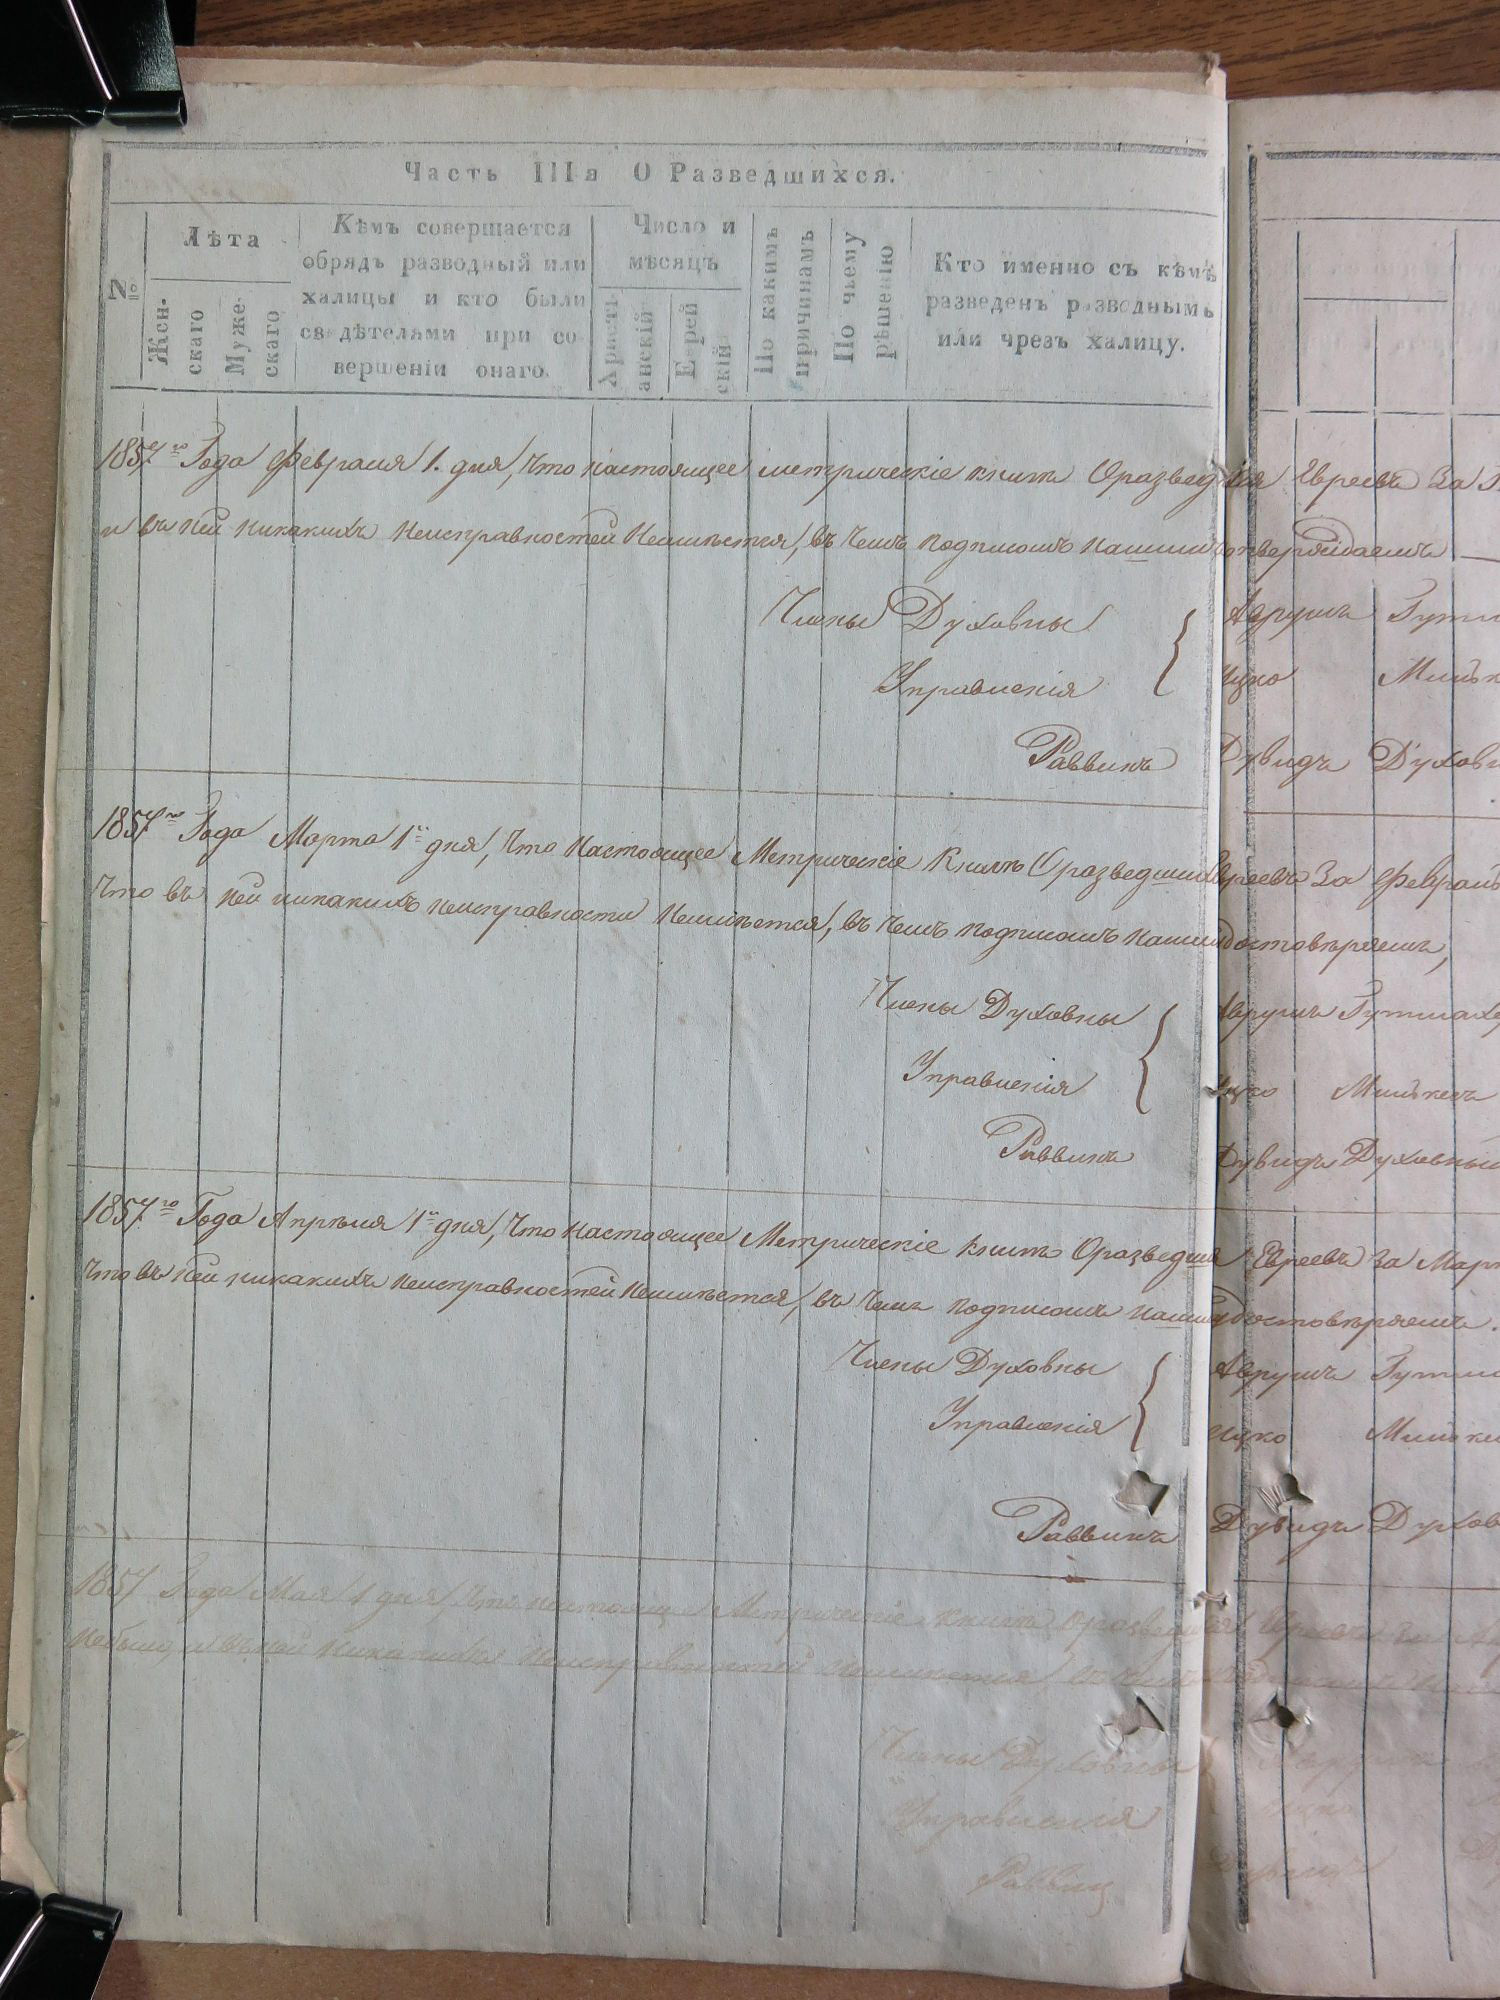 Часть IIIя О Разведшихся.
№
Лѣта
Жен-
скаго
Муже-
скаго
Кѣмъ совершается
обрядъ разводный или
халицы и кто были
свидѣтелями при со-
вершеніи онаго.
Число и
мѣсяцъ
Христі-
анскій
Еврей
скій
По какимъ
причинамъ
По чьему
рѣшенію
Кто именно съ кѣмъ
разведенъ разводнымъ
или чрезъ халицу.
1857го Года Февраля 1. дня, что настоящее метрическіе книги О разведшихся Евреевъ За
и въ ней никакихъ неисправностей неимѣется, въ чемъ подписомъ нашимъ утверждаемъ
Члены Духовны Аврумъ
Управленія Ицко
Раввинъ Дувидъ
1857го Года Марта 1го дня, что настоящее Метрическіе Книги О разведших Евреевъ За
что въ ней никакихъ неисправности неимѣется, въ чемъ подписомъ нашимъ достовѣряемъ,
Члены Духовны Аврумъ
Управленія Ицко
Раввинъ Дувидъ Духовный
1857го Года Апрѣля 1го дня, что настоящее Метрическіе книги О разведших Евреевъ за
что въ ней никакихъ неисправностей неимѣется, въ чемъ подписомъ нашимъ достовѣряемъ.
Члены Духовны Аврумъ
Управленія Ицко
Раввинъ Дувидъ
1857 Года Мая 1 дня, что настояще Метрическіе книги О разведшихся
небыло, и въ ней никакихъ неисправностей неимѣется, въ чемъ
Члены Духовны
Управленія
Раввин